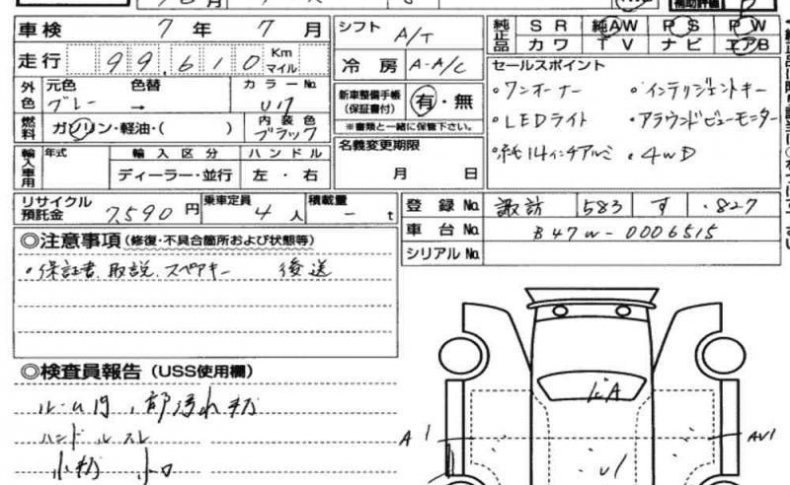 補助評価
車検 7年 7月
シフト A/T
純正品 SR 純AW PS PW
カワ TV ナビ エアB
走行 99,610 Km マイル
冷房 A-A/C
セールスポイント
外色 元色 グレー 色替 → カラーNo. U17
新車整備手帳(保証書付) 有・無
※書類と一緒に保管下さい。
・ワンオーナー ・インテリジェントキー
燃料 ガソリン・軽油・( ) 内装色 ブラック
・LEDライト ・アラウンドビューモニター
・純14インチアルミ ・4WD
輸入車用 年式 輸入区分 ハンドル
ディーラー・並行 左・右
名義変更期限 月 日
リサイクル預託金 7,590円 乗車定員 4人 積載量 ー t
登録No. 諏訪 583 す ・827
車台No. B47W-0006515
シリアルNo.
◎注意事項(修復・不具合箇所および状態等)
・保証書、取説、スペアキー 後送
◎検査員報告(USS使用欄)
ルーム内、部汚れ
ハンドルスレ
A1
AU1
U1